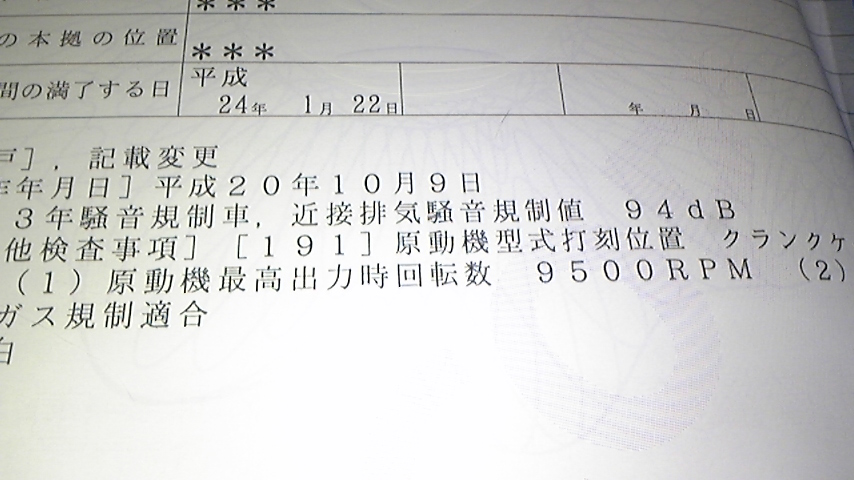 ***
の本拠の位置 ***
間の満了する日 平成
24年 1月 22日 年 月 日
戸], 記載変更
年月日] 平成20年10月9日
3年騒音規制車, 近接排気騒音規制値 94dB
他検査事項] [191] 原動機型式打刻位置 クランクケ
(1) 原動機最高出力時回転数 9500RPM (2)
ガス規制適合
白